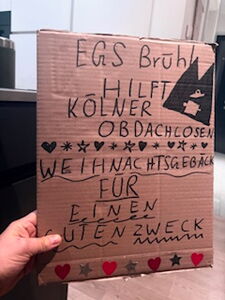 EGS Brühl
HILFT
KÖLNER
OBDACHLOSEN
WEIHNACHTSGEBÄCK
FÜR
EINEN
GUTEN ZWECK